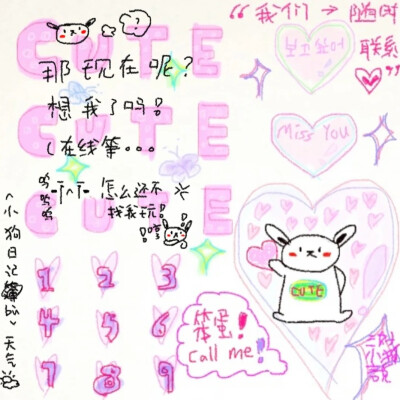 CUTE
?
那现在呢?
CUTE
想我了吗!
(在线等...
CUTE
怎么还不
找我玩!
“我们→随时
联系”
보고싶어
Miss You
CUTE
<小狗日记簿bù>天气
1 2 3
4 5 6
7 8 9
笨蛋!
call me!